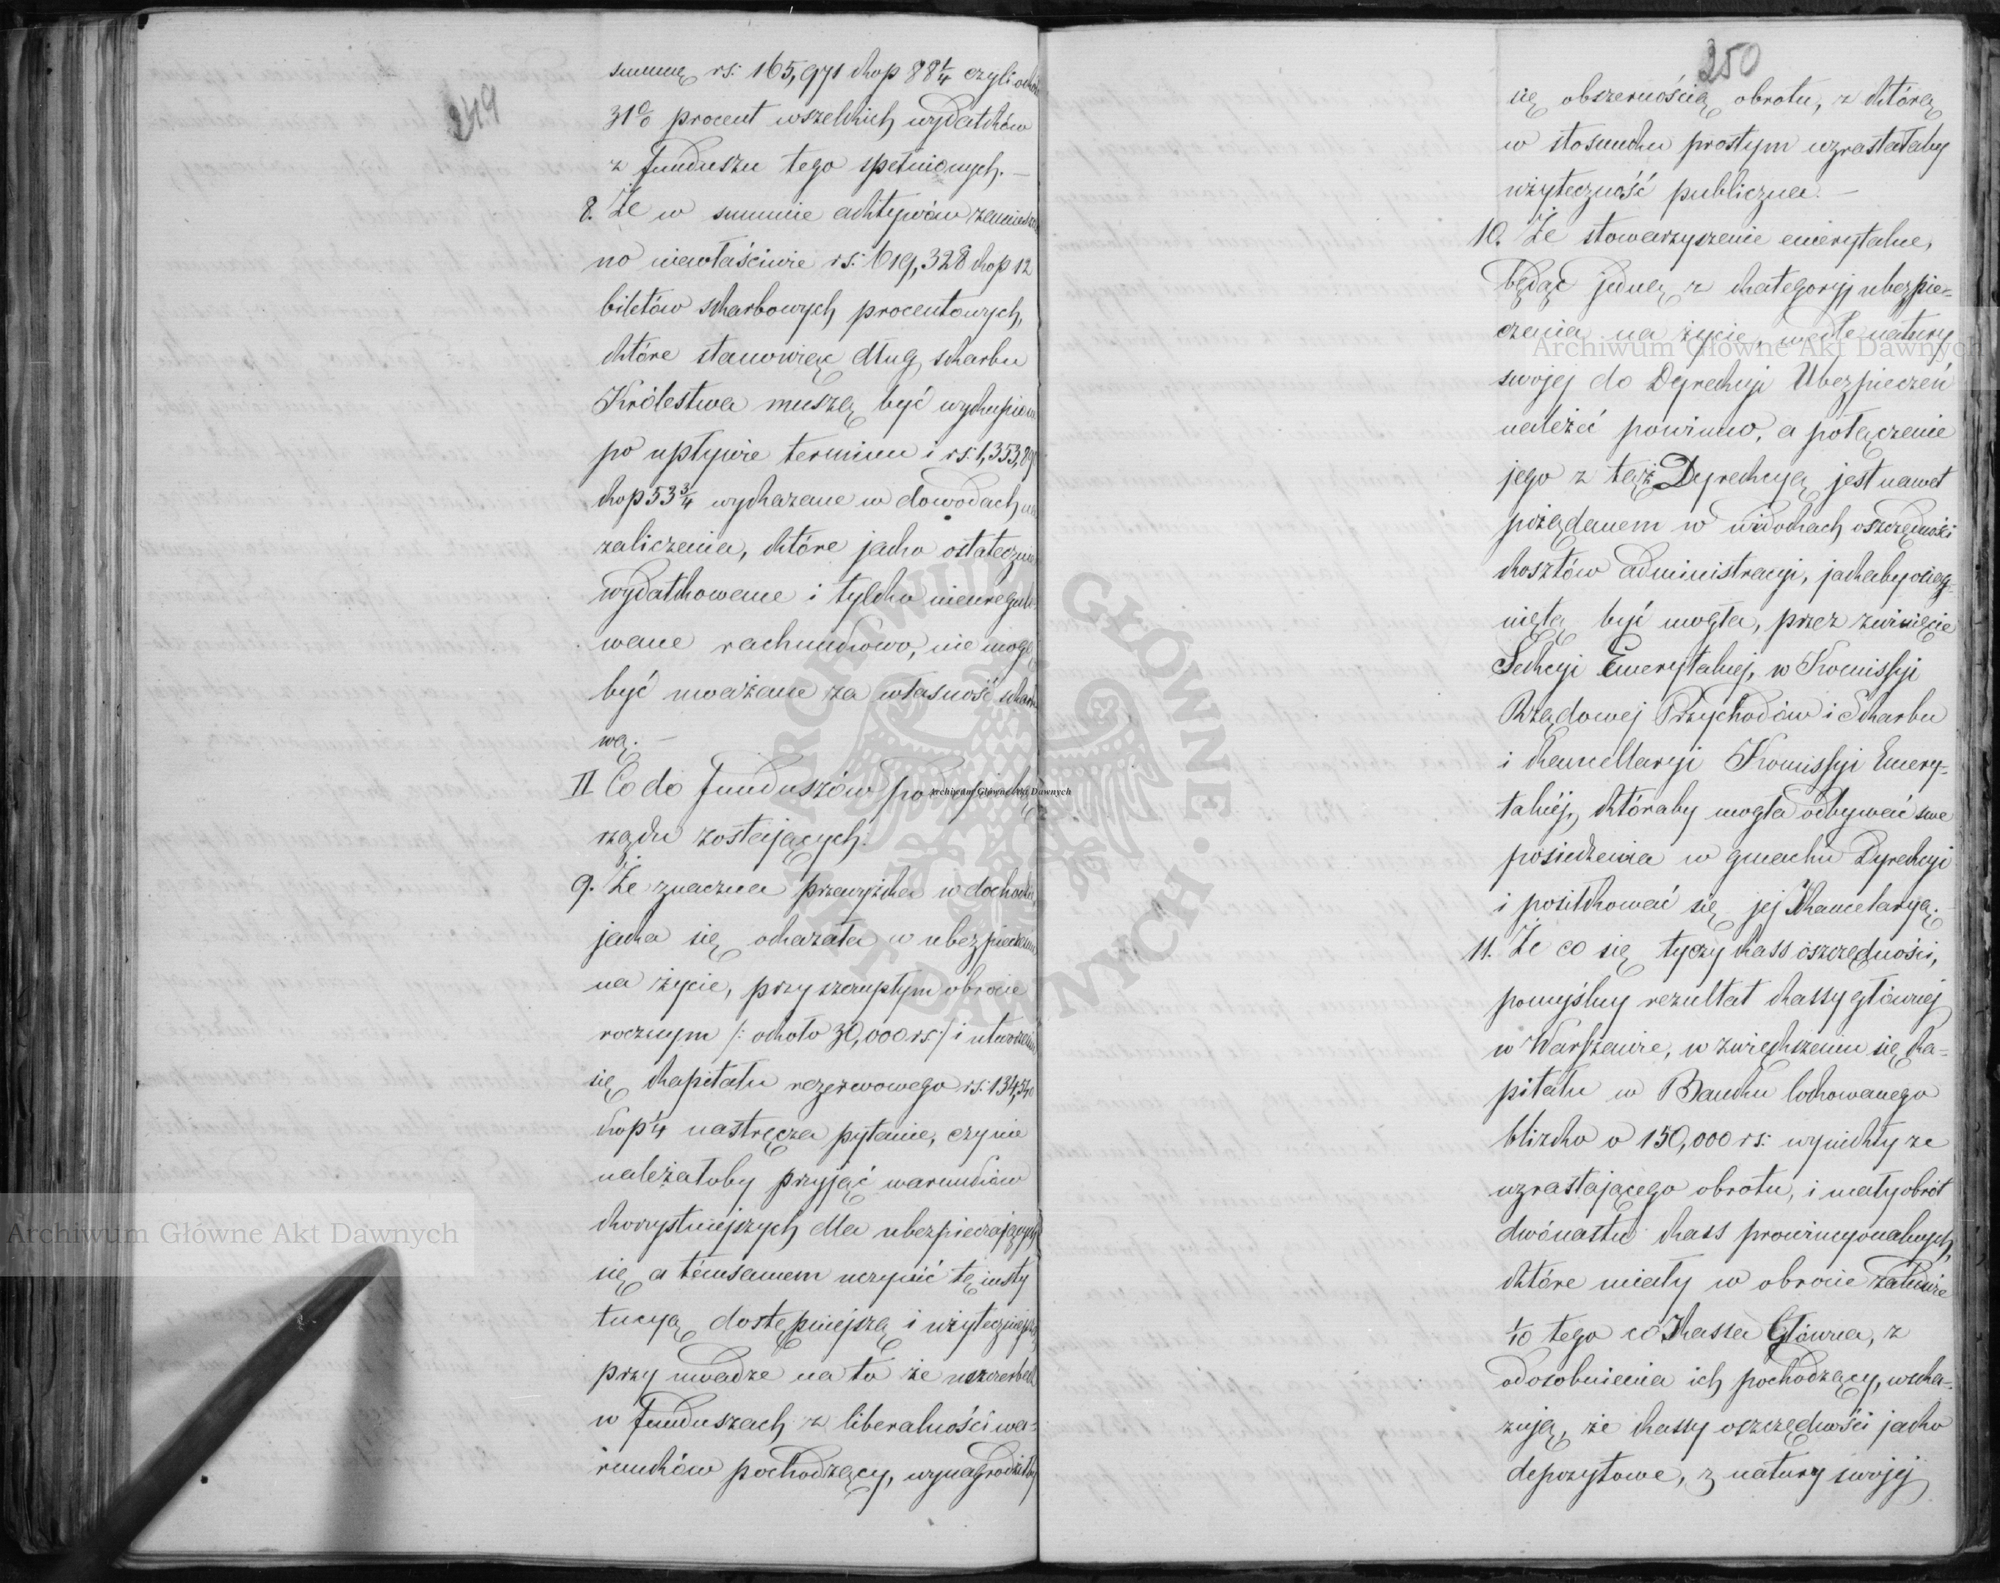 249
summę rs: 165,971 kop 88 1/4 czyli około
31% procent wszelkich wydatków
z funduszu tego spełnionych. —
8. Że w summie aktywów zamieszczo
no niewłaściwie rs: 619,328 kop 12
biletów skarbowych procentowych,
które stanowiąc dług skarbu
Królestwa muszą być wykupione
po upływie terminu i rs: 1,353,89
kop 53 3/4 wykazane w dowodach na
zaliczenia, które jako ostatecznie
wydatkowane i tylko nieuregulo-
wane rachunkowo, nie mogą
być uważane za własność skarbo
wą. —
II Co do funduszów pod opieką
rządu zostających:
9. Że znaczna przewyżka w dochodzie,
jaka się okazała w ubezpieczeniu
na życie, przy szczupłym obrocie
rocznym /: około 30,000 rs:/ i utworzenie
się kapitału rezerwowego rs: 134,540
kop 1/4 nastręcza pytanie, czy nie
należałoby przyjąć warunków
korzystniejszych dla ubezpieczających
się a témsamem uczynić tę insty
tucyą dostępniejszą i użyteczniejszą
przy uwadze na to że uszczerbek
w funduszach z liberalności wa-
runków pochodzący, wynagrodziłby
250
się obszernością obrotu, z którą
w stosunku prostym wzrastałaby
użyteczność publiczna. —
10. Że stowarzyszenie emerytalne,
będąc jedną z kategoryj ubezpie-
czenia na życie, wedle natury
swojej do Dyrekcyi Ubezpieczeń
należéć powinno, a połączenie
jego z tąż Dyrekcyą jest nawet
pożądanem w widokach oszczędności
kosztów administracyi, jakaby osiąg-
niętą być mogła, przez zwinięcie
Sekcyi Emerytalnej, w Kommissyi
Rządowej Przychodów i Skarbu
i Kancellaryi Kommissyi Emery-
talnéj, któraby mogła odbywać swe
posiedzenia w gmachu Dyrekcyi
i posiłkować się jej Kancelaryą.
11. Że co się tyczy kass oszczędności,
pomyślny rezultat kassy głównej
w Warszawie, w zwiększeniu się ka-
pitału w Banku lokowanego
blizko o 150,000 rs: wynikły ze
wzrastającego obrotu, i mały obrót
dwónastu kass prowincyonalnych,
które miały w obrocie zaledwie
1/10 tego co Kassa Główna, z
odosobnienia ich pochodzący, wska-
zują, że kassy oszczędności jako
depozytowe, z natury swojéj
Archiwum Główne Akt Dawnych
Archiwum Główne Akt Dawnych
Archiwum Główne Akt Dawnych
ARCHIWUM GŁÓWNE AKT DAWNYCH